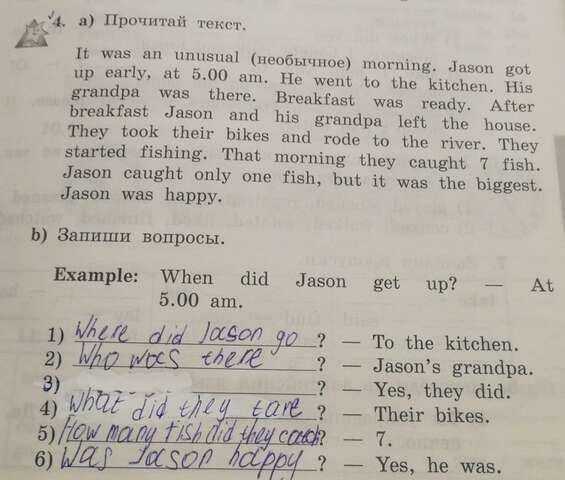 4. a) Прочитай текст.
It was an unusual (необычное) morning. Jason got
up early, at 5.00 am. He went to the kitchen. His
grandpa was there. Breakfast was ready. After
breakfast Jason and his grandpa left the house.
They took their bikes and rode to the river. They
started fishing. That morning they caught 7 fish.
Jason caught only one fish, but it was the biggest.
Jason was happy.
b) Запиши вопросы.
Example: When did Jason get up? — At
5.00 am.
1) Where did Jason go ? — To the kitchen.
2) Who was there ? — Jason's grandpa.
3) ? — Yes, they did.
4) What did they take ? — Their bikes.
5) How many fish did they catch? — 7.
6) Was Jason happy ? — Yes, he was.